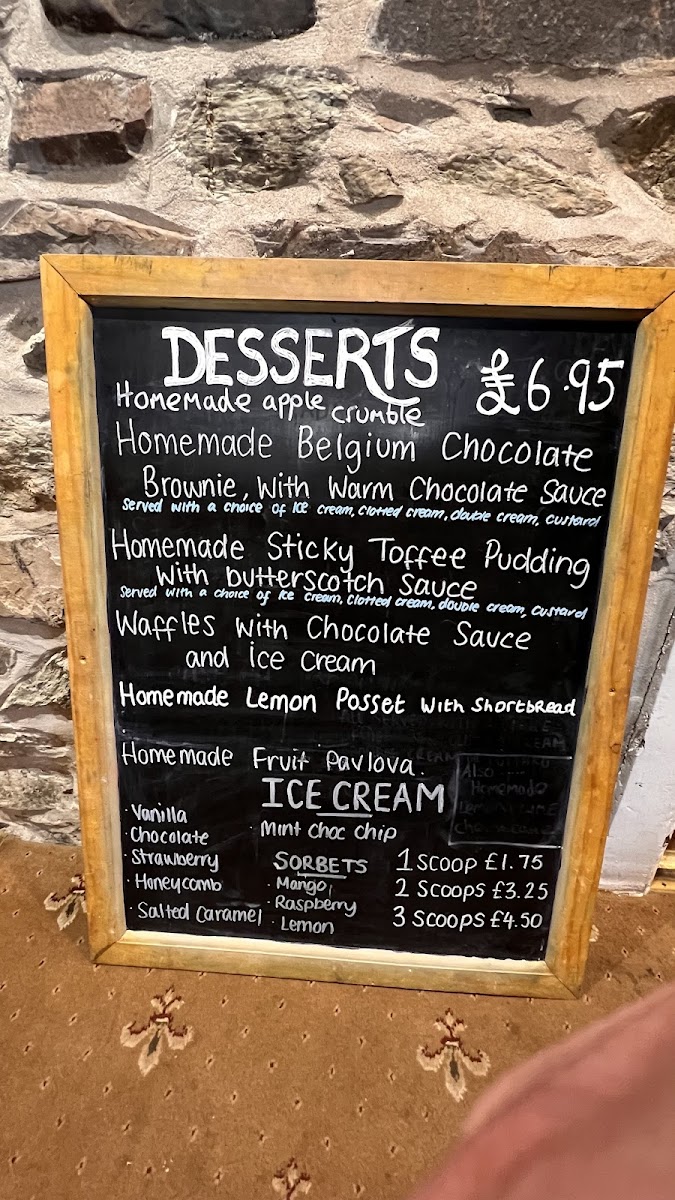 DESSERTS
£6.95
Homemade apple crumble
Homemade Belgium Chocolate
Brownie, With Warm Chocolate Sauce
Served with a choice of Ice cream, clotted cream, double cream, custard
Homemade Sticky Toffee Pudding
With butterscotch Sauce
Served with a choice of Ice cream, Clotted cream, double cream, custard
Waffles with Chocolate Sauce
and ice cream
Homemade Lemon Posset with Shortbread
Homemade Fruit Pavlova.
ICE CREAM
· Vanilla
· Chocolate
· Strawberry
· Honeycomb
· Salted Caramel
· Mint choc chip
SORBETS
· Mango
· Raspberry
· Lemon
1 SCOOP £1.75
2 SCOOPS £3.25
3 SCOOPS £4.50
Also
Homemade